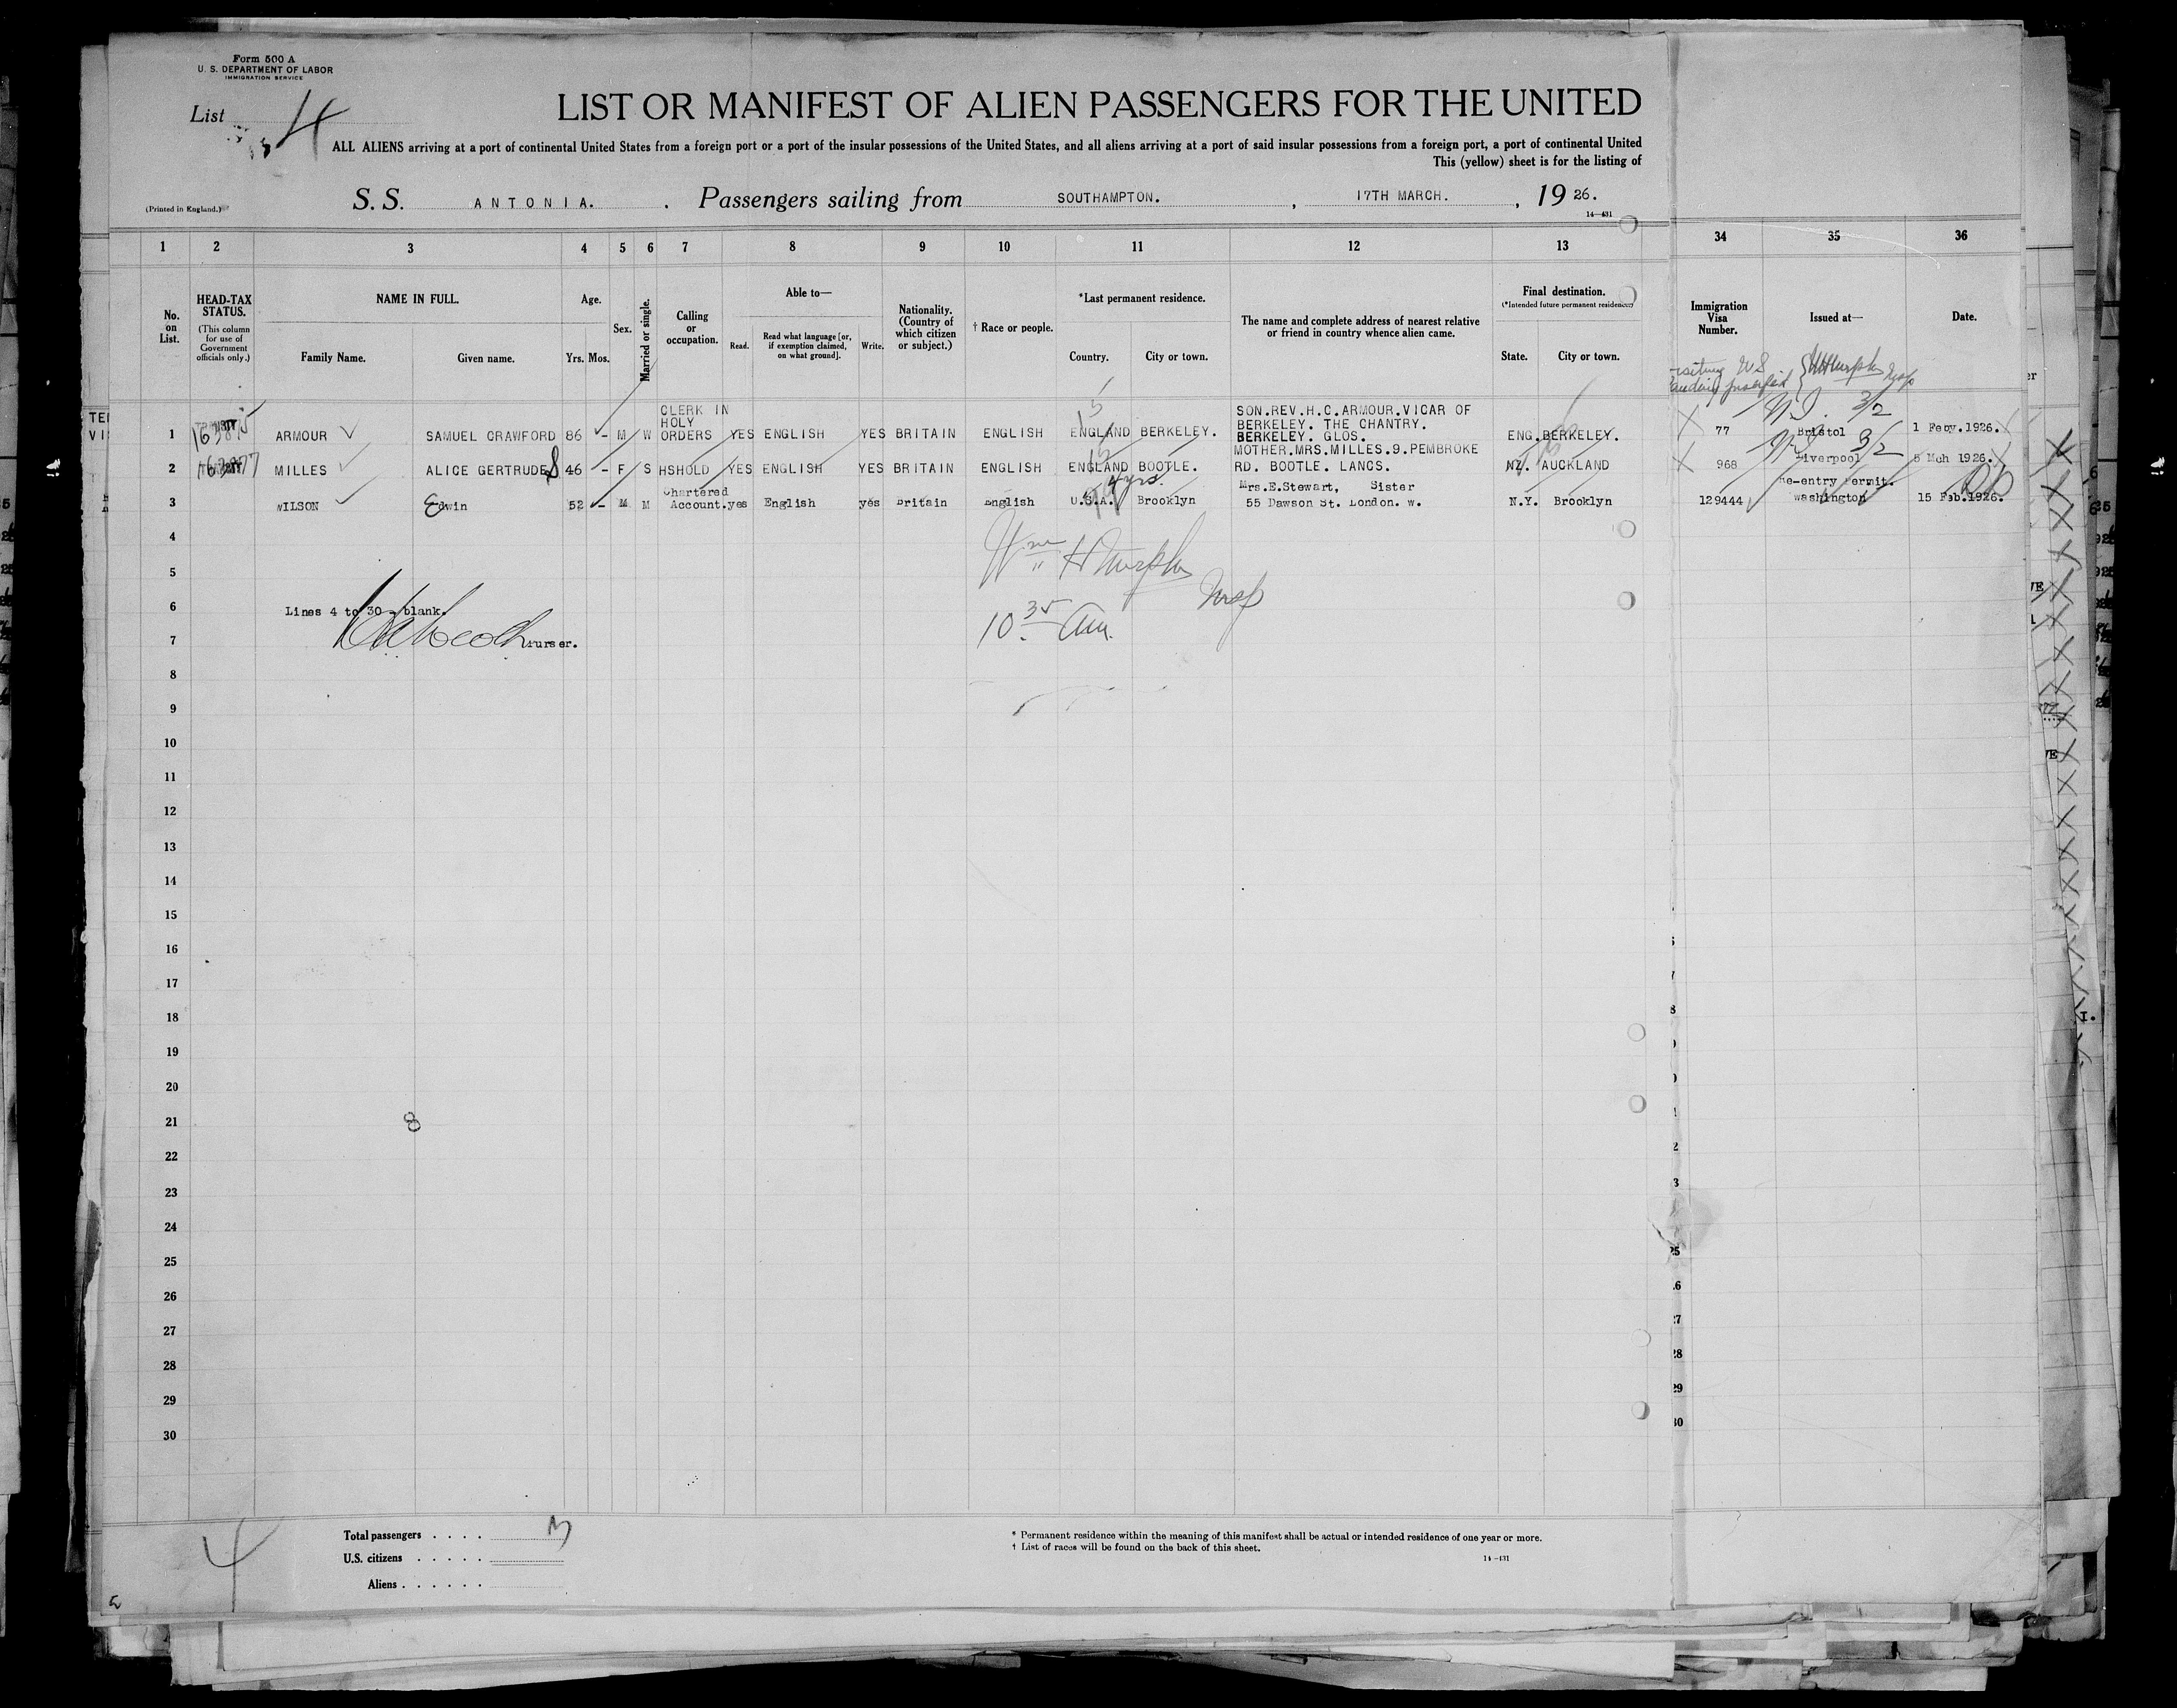 Form 500 A
U. S. DEPARTMENT OF LABOR
IMMIGRATION SERVICE
List 4
LIST OR MANIFEST OF ALIEN PASSENGERS FOR THE UNITED
ALL ALIENS arriving at a port of continental United States from a foreign port or a port of the insular possessions of the United States, and all aliens arriving at a port of said insular possessions from a foreign port, a port of continental United
This (yellow) sheet is for the listing of
(Printed in England.)
S. S. ANTONIA. . Passengers sailing from SOUTHAMPTON. , 17TH MARCH. , 19 26.
14—431
1 2 3 4 5 6 7 8 9 10 11 12 13 34 35 36
No. on List.
HEAD-TAX STATUS.
(This column for use of Government officials only.)
NAME IN FULL.
Family Name. Given name.
Age.
Yrs. Mos.
Sex.
Married or single.
Calling or occupation.
Able to—
Read. Read what language [or, if exemption claimed, on what ground]. Write.
Nationality. (Country of which citizen or subject.)
† Race or people.
*Last permanent residence.
Country. City or town.
The name and complete address of nearest relative or friend in country whence alien came.
Final destination.
(*Intended future permanent residence.)
State. City or town.
Immigration Visa Number.
Issued at—
Date.
1 ARMOUR SAMUEL CRAWFORD 86 - M W CLERK IN HOLY ORDERS YES ENGLISH YES BRITAIN ENGLISH ENGLAND BERKELEY. SON.REV.H.C.ARMOUR.VICAR OF BERKELEY. THE CHANTRY. BERKELEY. GLOS. ENG. BERKELEY. 77 Bristol 1 Feby.1926.
2 MILLES ALICE GERTRUDE 46 - F S HSHOLD YES ENGLISH YES BRITAIN ENGLISH ENGLAND BOOTLE. MOTHER.MRS.MILLES.9.PEMBROKE RD. BOOTLE. LANCS. NZ. AUCKLAND 968 Liverpool 5 Mch 1926.
3 WILSON Edwin 52 - M M Chartered Account. yes English yes Britain English U.S.A. Brooklyn Mrs.E.Stewart, Sister 55 Dawson St. London. W. N.Y. Brooklyn 129444 Re-entry Permit. Washington 15 Feb.1926.
4 yrs.
4
5
Wm H Murphy
Insp
6 Lines 4 to 30 - blank.
10 35 am.
7 Purser.
8
9
10
11
12
13
14
15
16
17
18
19
20
21
8
22
23
24
25
26
27
28
29
30
4
Total passengers . . . . 3
U.S. citizens . . . . .
Aliens . . . . . .
* Permanent residence within the meaning of this manifest shall be actual or intended residence of one year or more.
† List of races will be found on the back of this sheet.
14—431